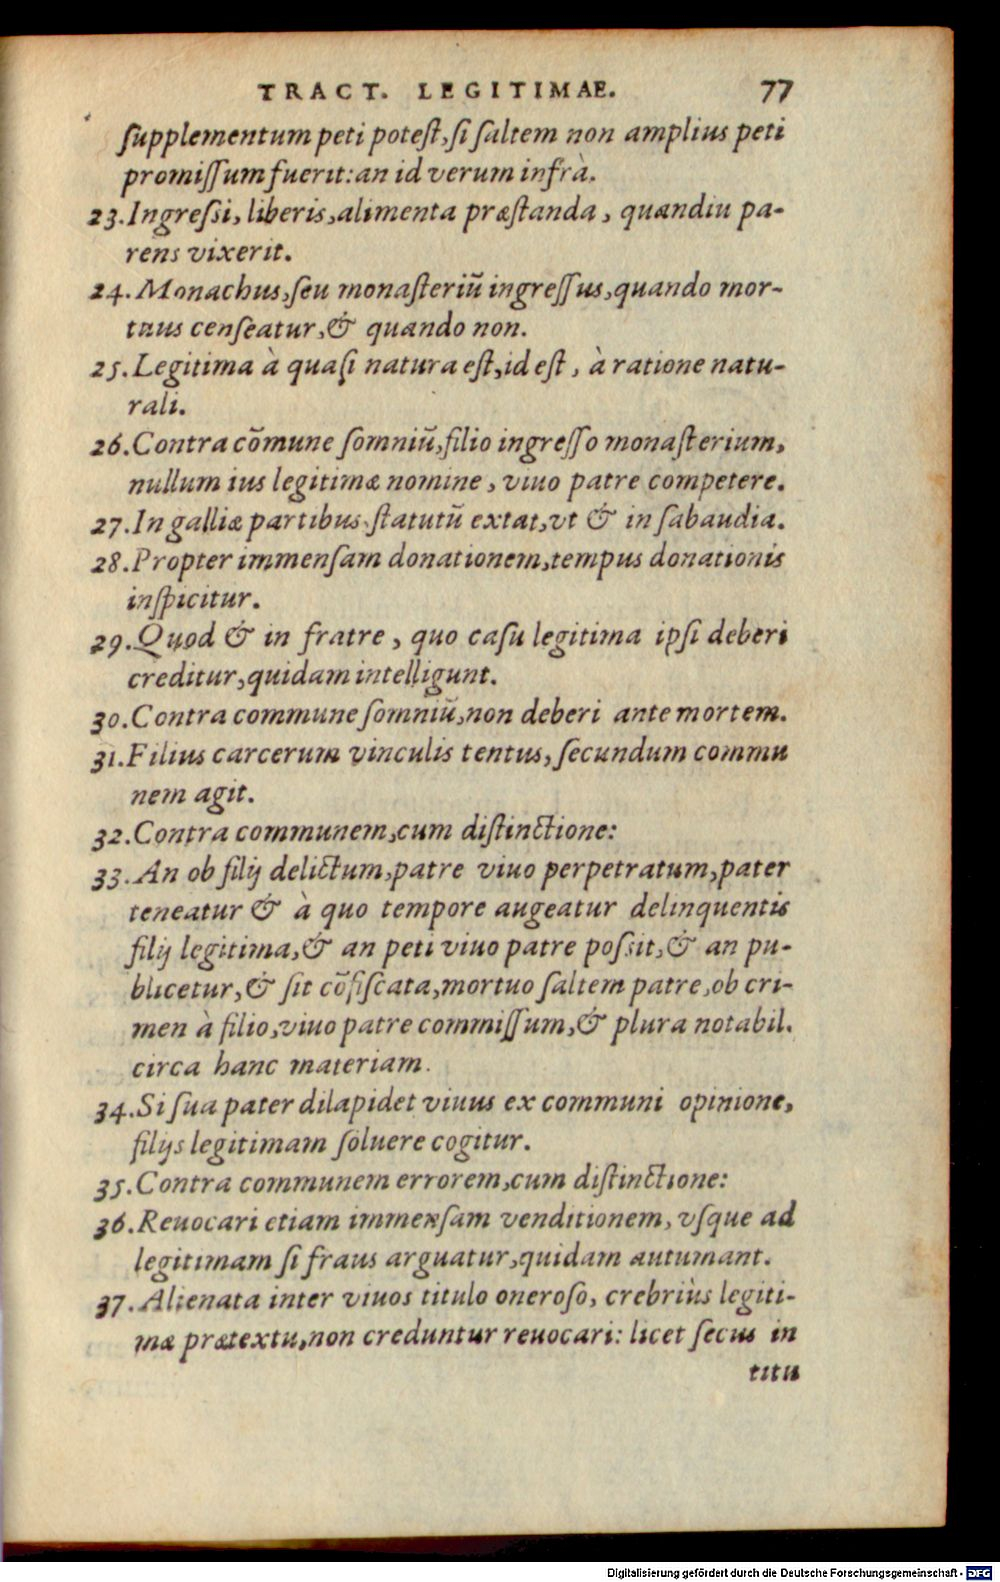 TRACT. LEGITIMAE. 77
ſupplementum peti poteſt, ſi ſaltem non amplius peti
promiſſum fuerit: an id verum infrà.
23. Ingreſsi, liberis, alimenta præſtanda, quandiu pa-
rens vixerit.
24. Monachus, ſeu monaſteriū ingreſſus, quando mor-
tuus cenſeatur, & quando non.
25. Legitima à quaſi natura eſt, id eſt, à ratione natu-
rali.
26. Contra cōmune ſomniū, filio ingreſſo monaſterium,
nullum ius legitimæ nomine, viuo patre competere.
27. In galliæ partibus ſtatutū extat, vt & in ſabaudia.
28. Propter immenſam donationem, tempus donationis
inſpicitur.
29. Quod & in fratre, quo caſu legitima ipſi deberi
creditur, quidam intelligunt.
30. Contra commune ſomniū, non deberi ante mortem.
31. Filius carcerum vinculis tentus, ſecundum commu
nem agit.
32. Contra communem, cum diſtinctione:
33. An ob filij delictum, patre viuo perpetratum, pater
teneatur & à quo tempore augeatur delinquentis
filij legitima, & an peti viuo patre poſsit, & an pu-
blicetur, & ſit cōfiſcata, mortuo ſaltem patre, ob cri-
men à filio, viuo patre commiſſum, & plura notabil.
circa hanc materiam.
34. Si ſua pater dilapidet viuus ex communi opinione,
filijs legitimam ſoluere cogitur.
35. Contra communem errorem, cum diſtinctione:
36. Reuocari etiam immenſam venditionem, vſque ad
legitimam ſi fraus arguatur, quidam autumant.
37. Alienata inter viuos titulo oneroſo, crebriùs legiti-
mæ prætextu, non creduntur reuocari: licet ſecus in
titu
Digitalisierung gefördert durch die Deutsche Forschungsgemeinschaft - DFG